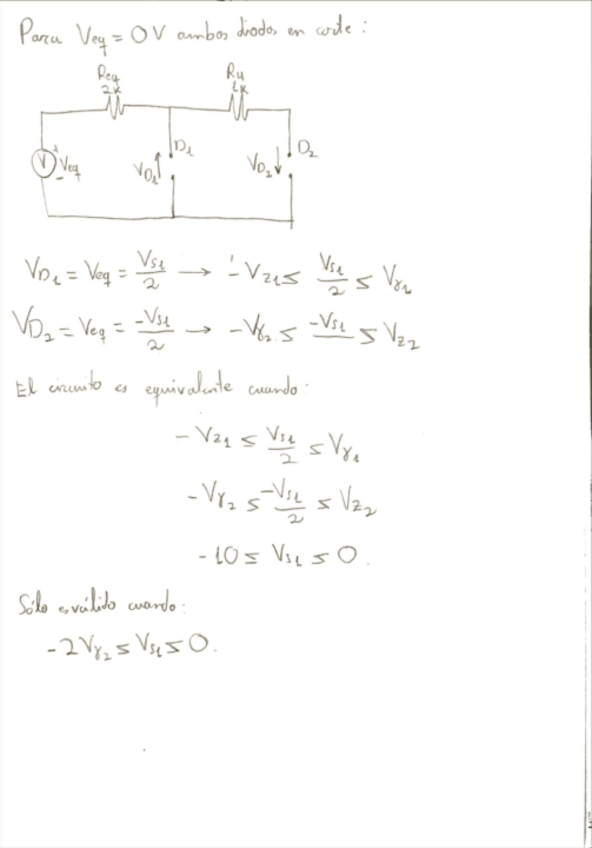 Para Veq = 0V ambos diodos en corte:
Req
2K
R4
1K
V
+
-
Veq
VD1
D1
VD2
D2
VD1 = Veq = Vs1/2 → -Vz1 ≤ Vs1/2 ≤ Vγ1
VD2 = Veq = -Vs1/2 → -Vγ2 ≤ -Vs1 ≤ Vz2
El circuito es equivalente cuando:
-Vz1 ≤ Vs1/2 ≤ Vγ1
-Vγ2 ≤ -Vs1/2 ≤ Vz2
-10 ≤ Vs1 ≤ 0.
Sólo es válido cuando:
-2Vγ2 ≤ Vs1 ≤ 0.